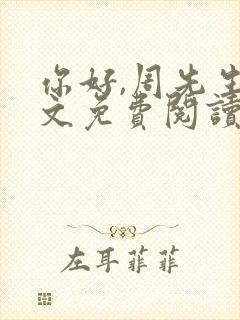 你好,周先生
文免費閱讀
左耳菲菲